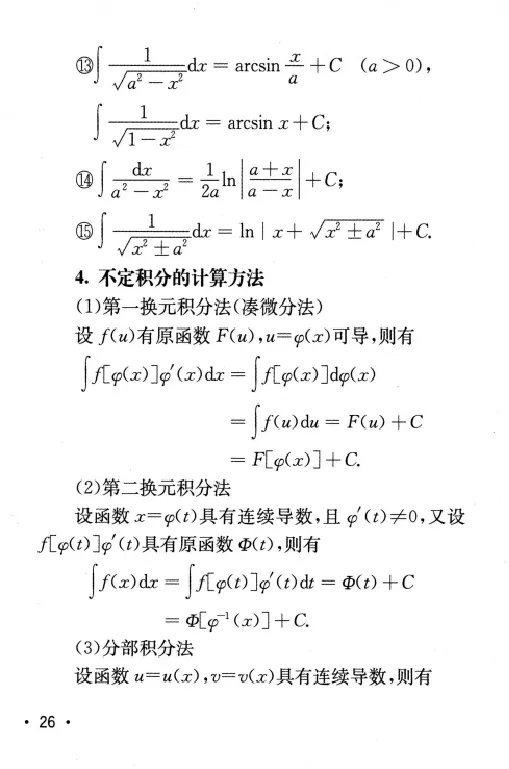 ⑬∫ 1/√(a²－x²) dx = arcsin x/a +C (a＞0),
∫ 1/√(1－x²) dx = arcsin x+C;
⑭∫ dx/(a²－x²) = 1/(2a) ln|(a+x)/(a－x)|+C;
⑮∫ 1/√(x²±a²) dx = ln | x+√(x²±a²) |+C.
4. 不定积分的计算方法
(1)第一换元积分法(凑微分法)
设 f(u)有原函数 F(u),u=φ(x)可导,则有
∫f[φ(x)]φ′(x)dx = ∫f[φ(x)]dφ(x)
= ∫f(u)du = F(u)+C
= F[φ(x)]+C.
(2)第二换元积分法
设函数 x=φ(t)具有连续导数,且 φ′(t)≠0,又设
f[φ(t)]φ′(t)具有原函数 Φ(t),则有
∫f(x)dx = ∫f[φ(t)]φ′(t)dt = Φ(t)+C
= Φ[φ⁻¹(x)]+C.
(3)分部积分法
设函数 u=u(x),v=v(x)具有连续导数,则有
· 26 ·